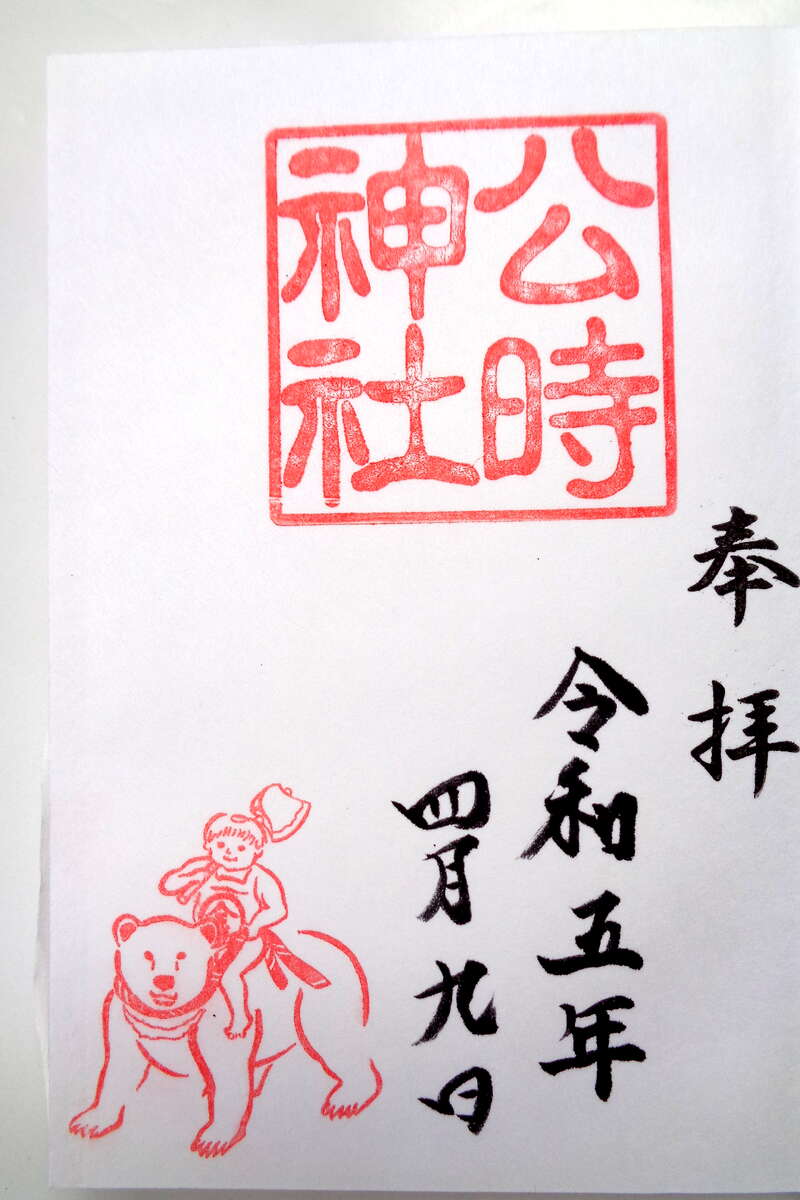 奉拝
公時
神社
令和五年
四月九日